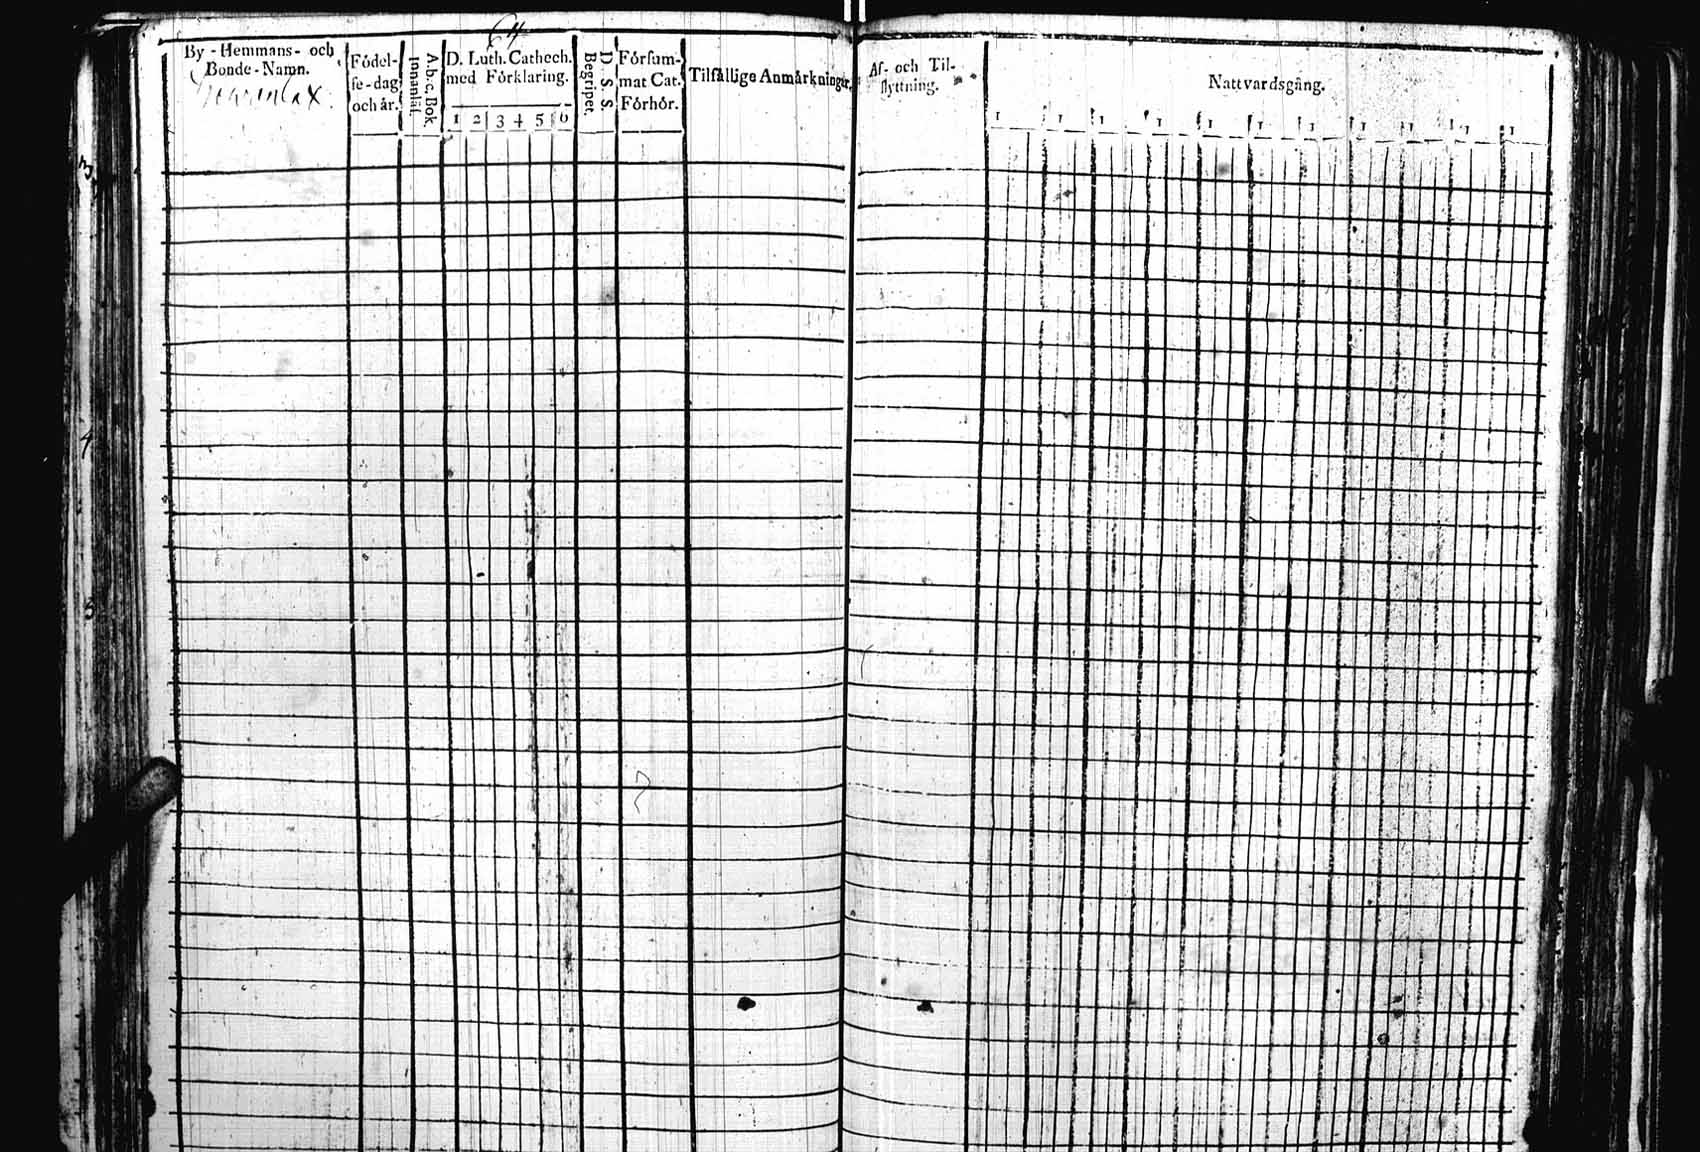 64
By - Hemmans- och
Bonde - Namn.
Födel-
se-dag
och år.
A, b, c, Bok.
Innanläs.
D. Luth. Cathech.
med Förklaring.
1 2 3 4 5 6
D. S. S.
Begripet.
Försum-
mat Cat.
Förhör.
Tilfällige Anmärkningar.
Af- och Til-
flyttning.
Nattvardsgång.
1 1 1 1 1 1 1 1 1 1 1
3
4
3